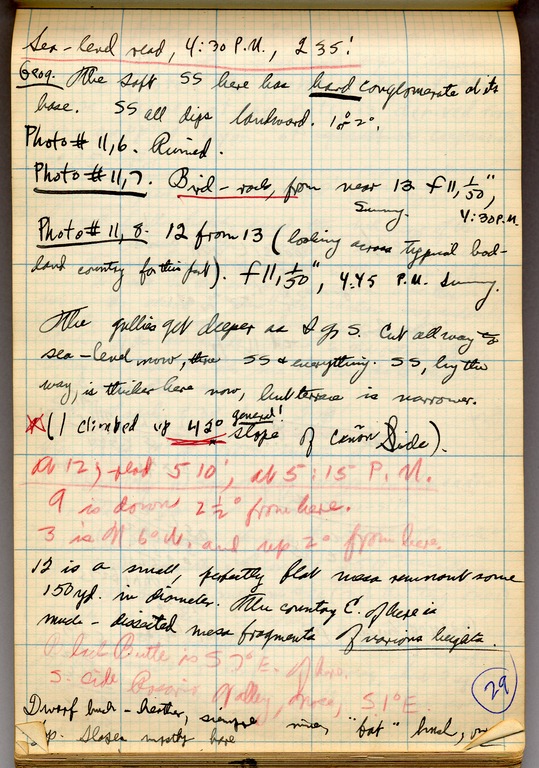 Sea-level read, 4:30 P.M., 235'.
Geog. The soft SS here has hard conglomerate at its
base. SS all dips landward. 1° or 2°.
Photo # 11,6. Ruined.
Photo # 11,7. Bird-rock, from near 13 f11, 1/50",
Sunny. 4:30 P.M.
Photo # 11, 8. 12 from 13 (looking across typical bad-
land country for this part). f11, 1/50", 4:45 P.M. Sunny.
The gullies get deeper as I go S. Cut all way to
sea-level now, thru SS & everything. SS, by the
way, is thicker here now, but terrace is narrower.
(I climbed up 42° general! slope of cañon side).
At 12, read 510', at 5:15 P.M.
9 is down 2½° from here.
3 is N 6° W. and up 2° from here.
12 is a small, perfectly flat mesa remnant some
150 yd. in diameter. The country E. of here is
much-dissected mesa fragments of various heights.
Butte is S 7° E. of here.
S. side Rosario Valley, mesa, S 1° E.
Dwarf buck-heather, siempre "fat" bush,
Slopes mostly bare
29